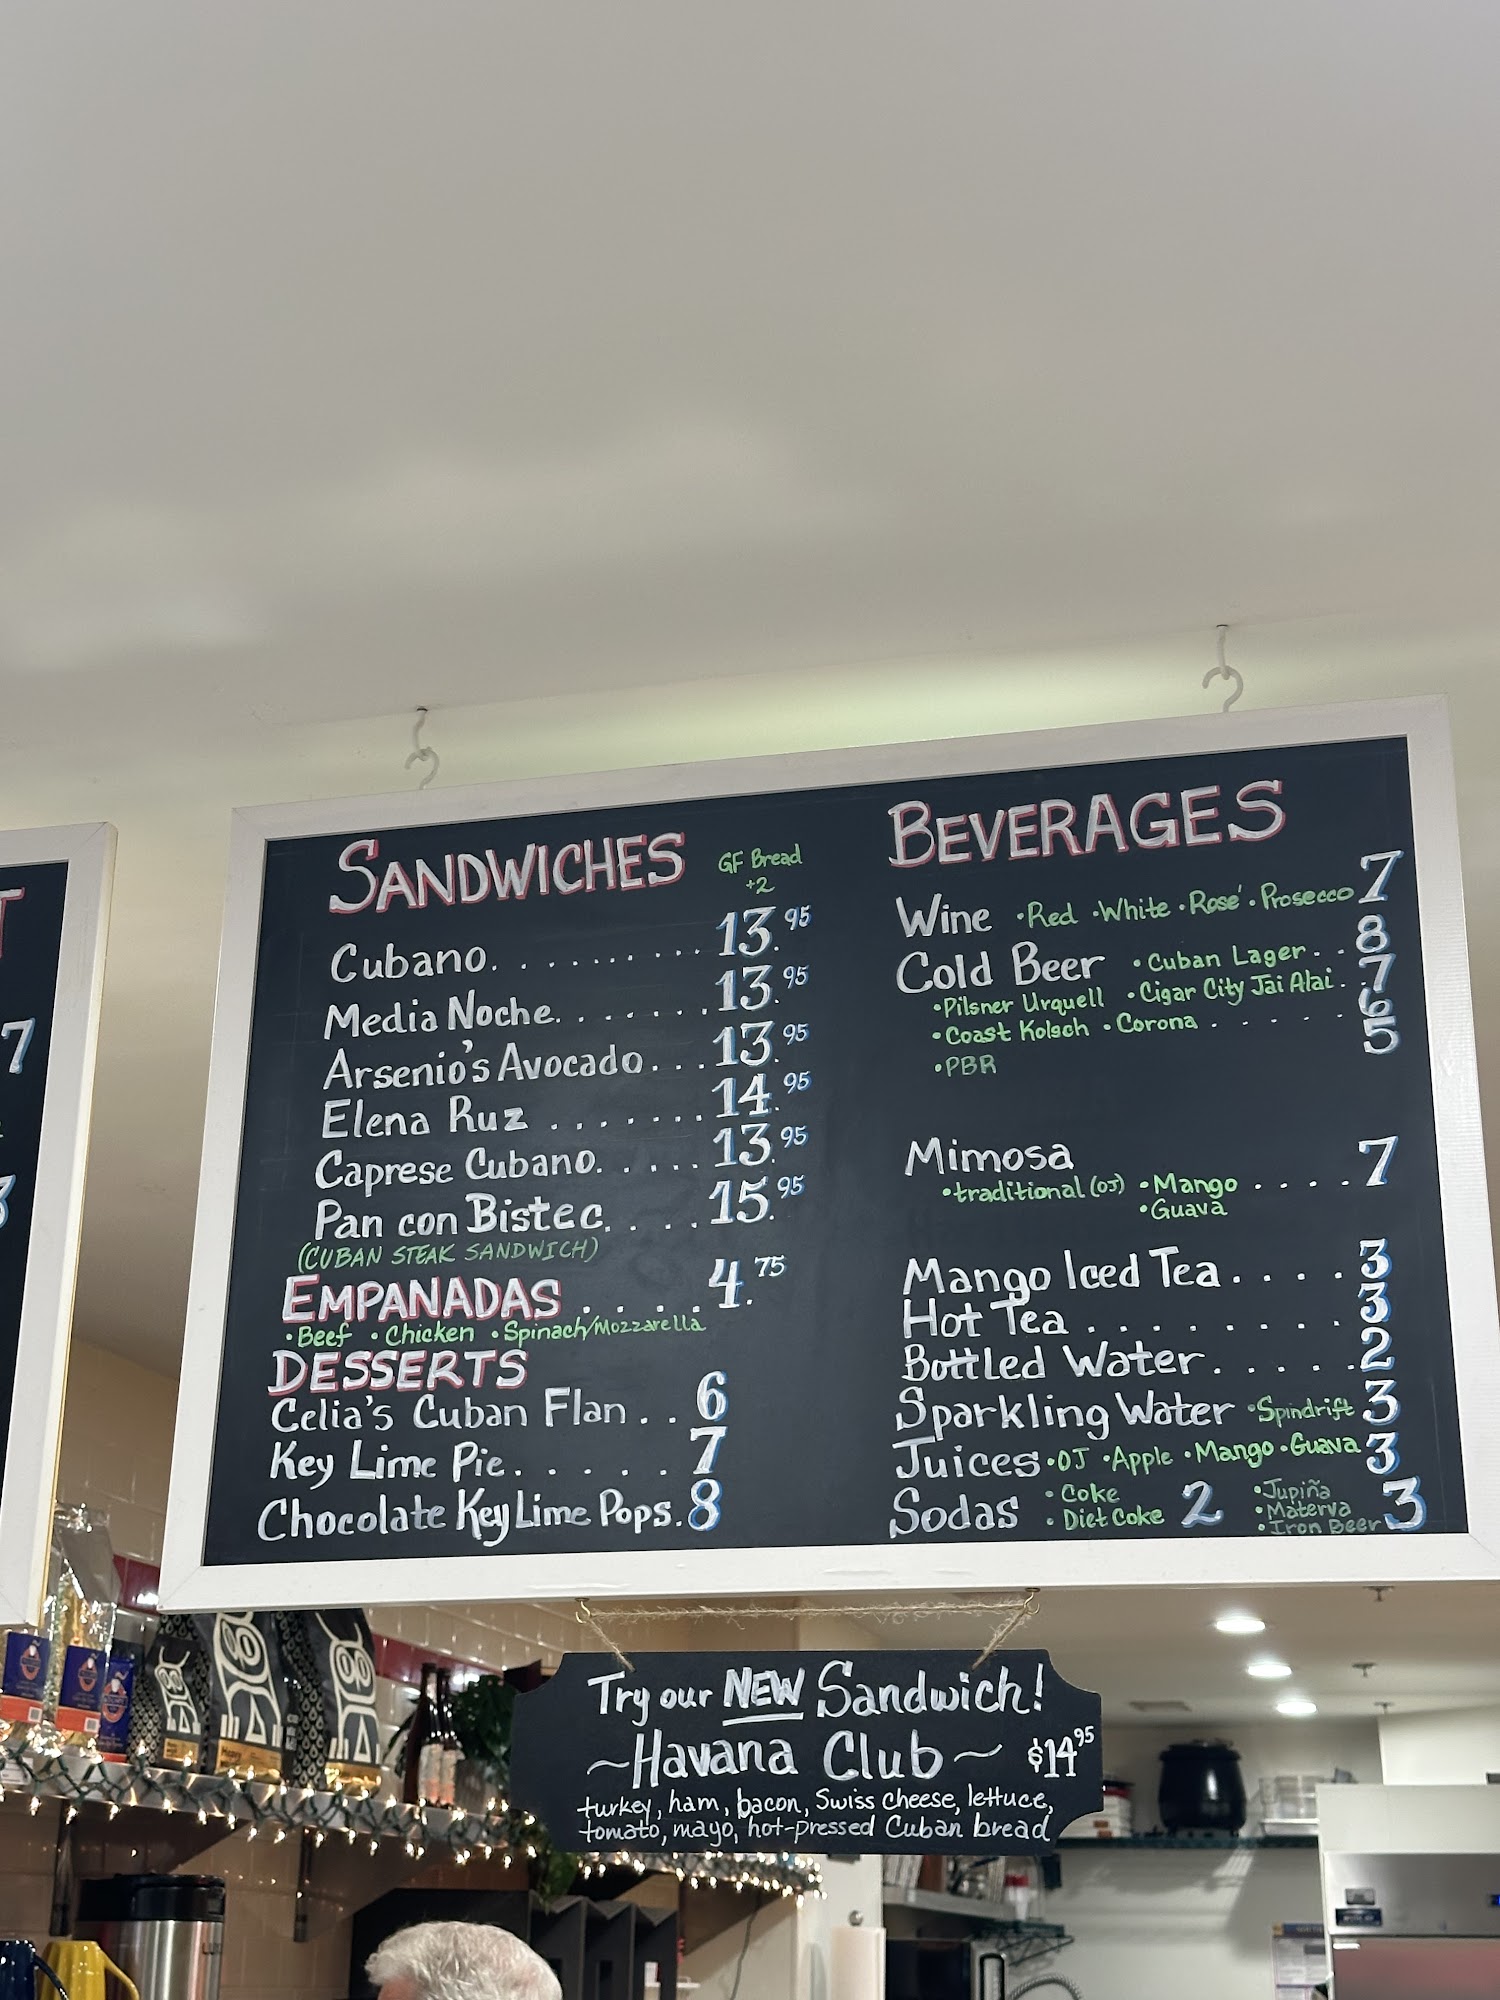 SANDWICHES GF Bread +2
Cubano. . . . . . . . . . 13.95
Media Noche. . . . . . . 13.95
Arsenio's Avocado. . . 13.95
Elena Ruz . . . . . . . 14.95
Caprese Cubano. . . . . 13.95
Pan con Bistec. . . . . 15.95
(CUBAN STEAK SANDWICH)
EMPANADAS . . . . . 4.75
• Beef • Chicken • Spinach/Mozzarella
DESSERTS
Celia's Cuban Flan . . 6
Key Lime Pie. . . . . . 7
Chocolate Key Lime Pops. 8
BEVERAGES
Wine • Red • White • Rosé • Prosecco 7
Cold Beer • Cuban Lager . . 8
• Pilsner Urquell • Cigar City Jai Alai . . 7
• Coast Kolsch • Corona . . . . . 6
• PBR 5
Mimosa 7
• traditional (OJ) • Mango . . . .
• Guava
Mango Iced Tea . . . . 3
Hot Tea . . . . . . . . . 3
Bottled Water . . . . . 2
Sparkling Water • Spindrift 3
Juices • OJ • Apple • Mango • Guava 3
Sodas • Coke • Diet Coke 2 • Jupiña • Materva • Iron Beer 3
Try our NEW Sandwich!
~Havana Club~ $14.95
turkey, ham, bacon, Swiss cheese, lettuce,
tomato, mayo, hot-pressed Cuban bread
7